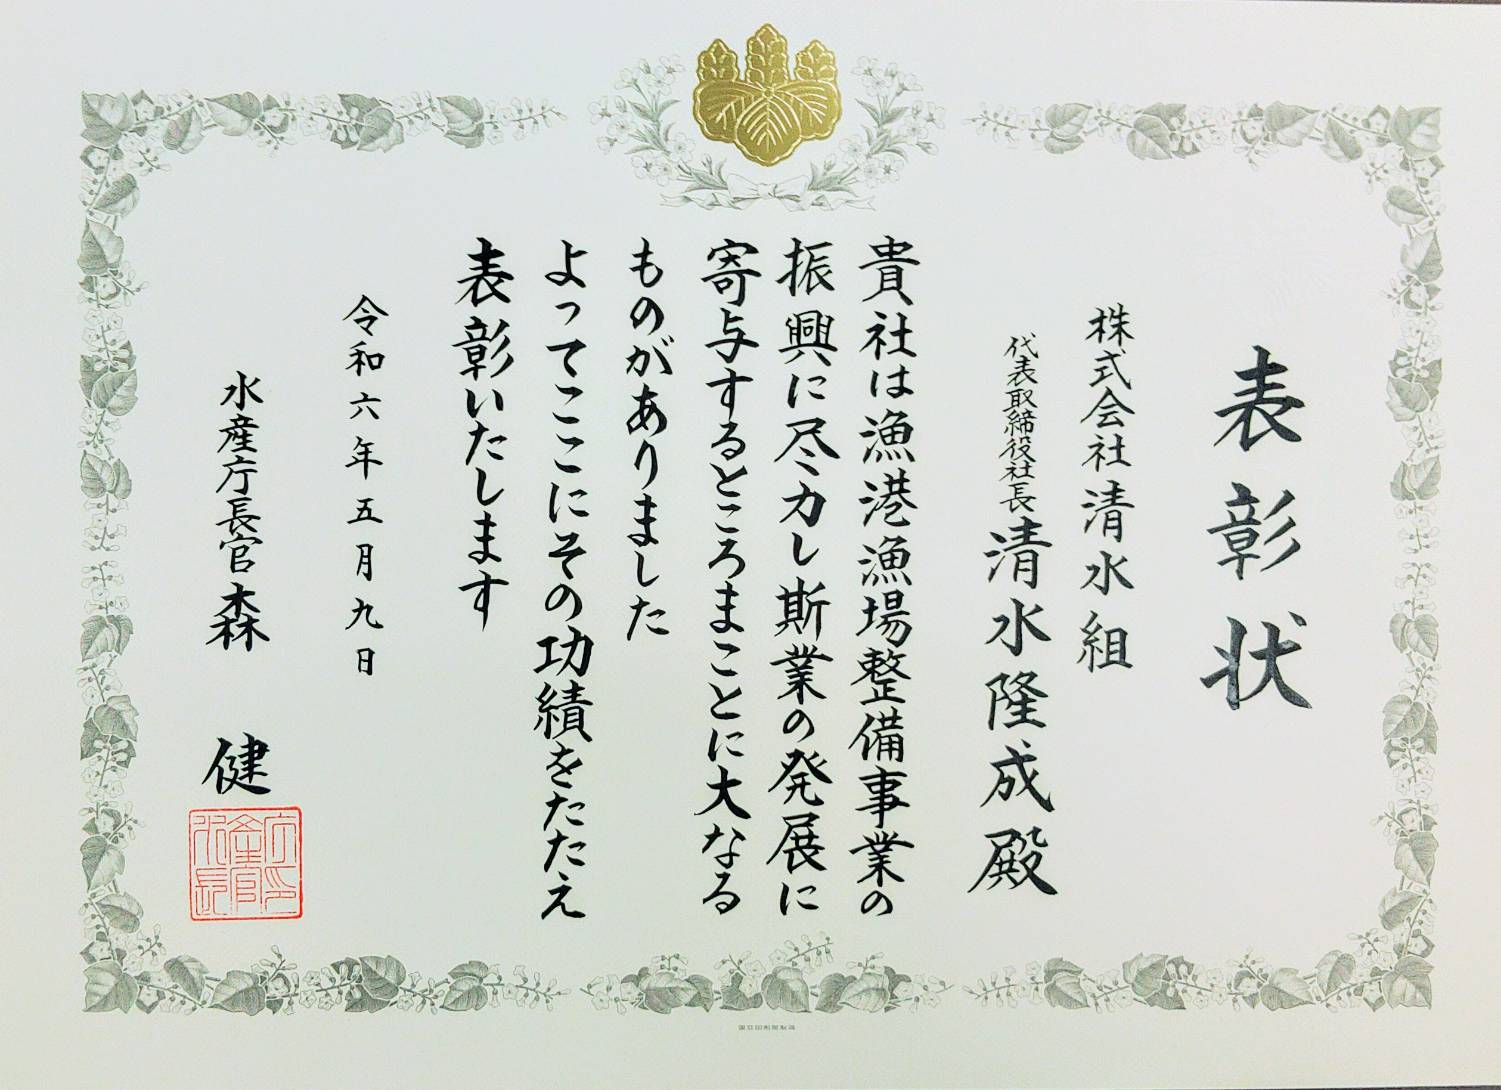 表彰状
株式会社清水組
代表取締役社長清水隆成殿
貴社は漁港漁場整備事業の
振興に尽力し斯業の発展に
寄与するところまことに大なる
ものがありました
よってここにその功績をたたえ
表彰いたします
令和六年五月九日
水産庁長官森　健